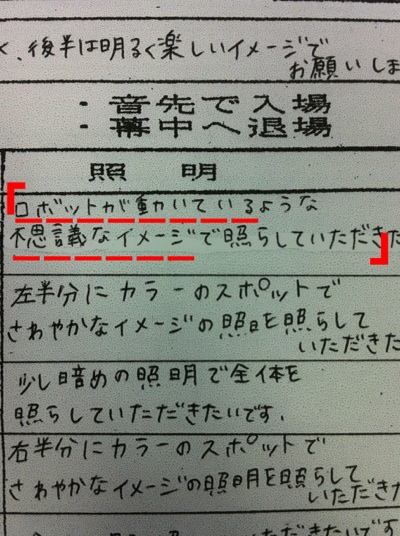 く、後半は明るく楽しいイメージで
お願いしま
・音先で入場
・幕中へ退場
照 明
ロボットが動いているような
不思議なイメージで照らしていただきた
左半分にカラーのスポットで
さわやかなイメージの照明を照らして
いただきた
少し暗めの照明で全体を
照らしていただきたいです.
右半分にカラーのスポットで
さわやかなイメージの照明を照らして
いただきた
いただきたいです